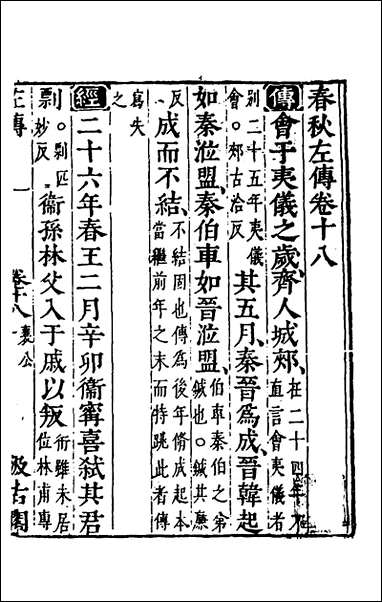 春秋左傳卷十八
傳會于夷儀之歲齊人城郟在二十四年不直言會夷儀者
別二十五年夷儀會○郟古洽反其五月秦晉爲成晉韓起
如秦涖盟秦伯車如晉涖盟伯車秦伯之弟鍼也○鍼其廉
反成而不結不結固也傳爲後年脩成起本當繼前年之末而特跳此者傳
寫失之
經二十六年春王二月辛卯衞甯喜弒其君
剽○剽匹妙反衞孫林父入于戚以叛衎雖未居位林甫專
左傳 一 卷十八 襄公 汲古閣